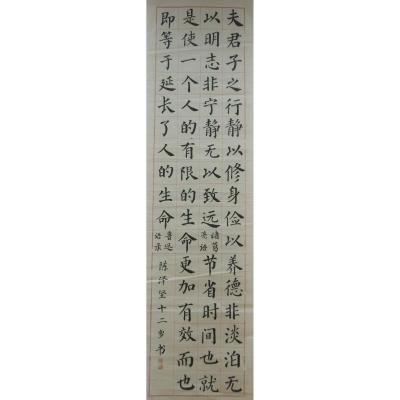 夫君子之行静以修身俭以养德非淡泊无
以明志非宁静无以致远诸葛亮语节省时间也就
是使一个人的有限的生命更加有效而也
即等于延长了人的生命鲁迅语录陈泽坚十二岁书